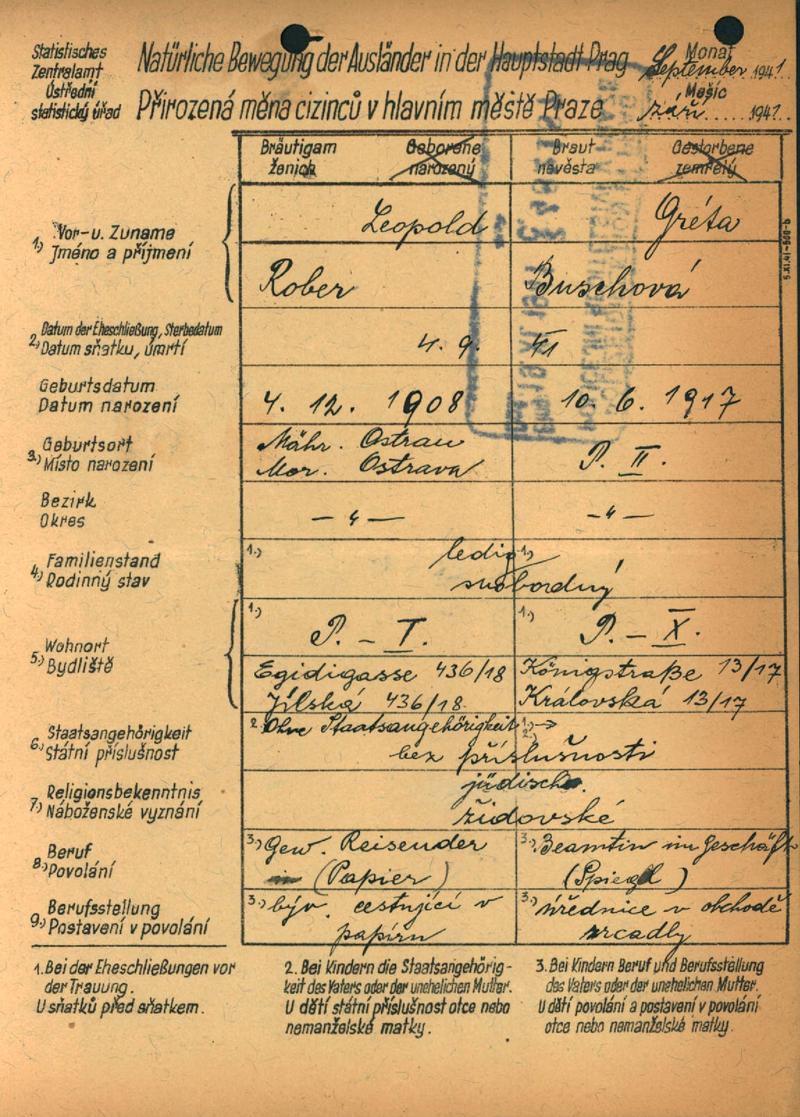 Statistisches
Zentralamt
Ústřední
statistický úřad
Natürliche Bewegung der Ausländer in der Hauptstadt Prag
Monat
September 1941.
Přirozená měna cizinců v hlavním městě Praze
Měsíc
září ..... 1941.
Bräutigam Geborene Braut Gestorbene
ženich narozený nevěsta zemřelý
1.) Vor-u. Zuname
Jméno a příjmení
Leopold Gréta
Rober Buschová
2.) Datum der Eheschließung, Sterbedatum
Datum sňatku, úmrtí
4. 9. 41
Geburtsdatum
Datum narození
4. 12. 1908 10. 6. 1917
3.) Geburtsort
Místo narození
Mähr. Ostrau
Mor. Ostrava P. II.
Bezirk
Okres
— " — — " —
4.) Familienstand
Rodinný stav
1.) ledig 1.)
svobodný
5.) Wohnort
Bydliště
1.) P. – I. 1.) P. – X.
Egidigasse 436/18 Königstraße 13/17
Jilská 436/18 Královská 13/17
6.) Staatsangehörigkeit
Státní příslušnost
2. Ohne Staatsangehörigkeit
bez příslušnosti
7.) Religionsbekenntnis
Náboženské vyznání
jüdisch.
židovské
8.) Beruf
Povolání
3.) Gew. Reisender 3.) Beamtin im Geschäft
(Papier) (Spiegel)
9.) Berufsstellung
Postavení v povolání
3.) býv. cestující v 3.) úřednice v obchodě
papíru zrcadly
1. Bei der Eheschließungen vor
der Trauung.
U sňatků před sňatkem.
2. Bei Kindern die Staatsangehörig-
keit des Vaters oder der unehelichen Mutter.
U dětí státní příslušnost otce nebo
nemanželské matky.
3. Bei Kindern Beruf und Berufsstellung
des Vaters oder der unehelichen Mutter.
U dětí povolání a postavení v povolání
otce nebo nemanželské matky.